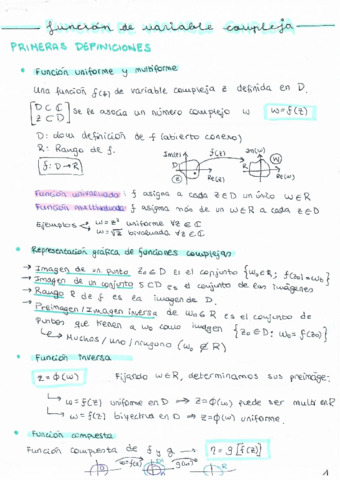 función de variable compleja
PRIMERAS DEFINICIONES
• Función uniforme y multiforme
Una función f(z) de variable compleja z definida en D.
[D ⊂ ℂ
z ⊂ D] se le asocia un número complejo w   w = f(z)
D: dom definición de f (abierto conexo)
R: Rango de f.
f: D → R
Im(z) f(z) Im(w)
D R W
Z Re(z) Re(w)
Función univaluada: f asigna a cada z∈D un único w∈R
Función multivaluada: f asigna más de un w∈R a cada z∈D
Ejemplos w = z² uniforme ∀z ∈ ℂ
w = √z bivaluada ∀z ∈ ℂ
• Representación gráfica de funciones complejas
→ Imagen de un punto z₀∈D es el conjunto {w₀∈R; f(z₀)=w₀}
→ Imagen de un conjunto S⊂D es el conjunto de las imágenes
→ Rango R de f es la imagen de D.
→ Preimagen/Imagen inversa de w₀∈R es el conjunto de
puntos que tienen a w₀ como imagen {z₀∈D: w₀=f(z₀)}
↳ Muchos/uno/ninguno (w₀ ∉ R)
• Función inversa
z = Φ(w) Fijando w∈R, determinamos sus preimágs:
↳ w=f(z) uniforme en D ⇒ z=Φ(w) puede ser multi en R
↳ w=f(z) biyectiva en D → z=Φ(w) uniforme.
• Función compuesta
Función compuesta de f y g → η = g[f(z)]
D w=f(z) D' g(w) R
1